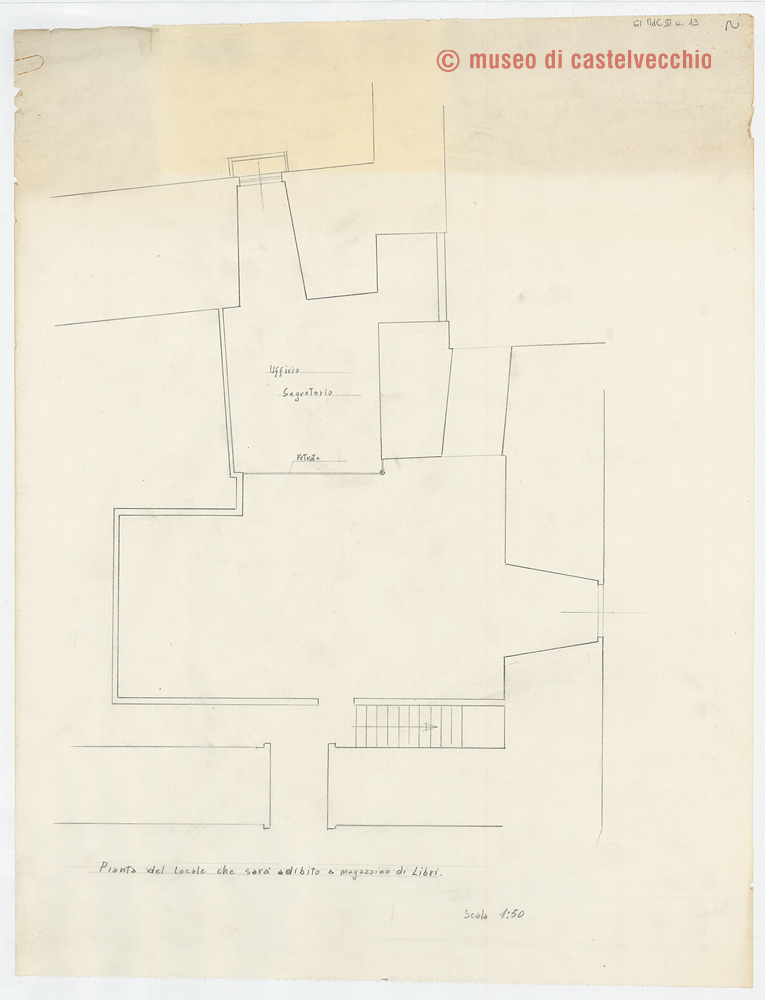 © museo di castelvecchio
Ufficio
Segretario
Vetrata
Pianta del Locale che sarà adibito a magazzino di Libri.
Scala 1:50